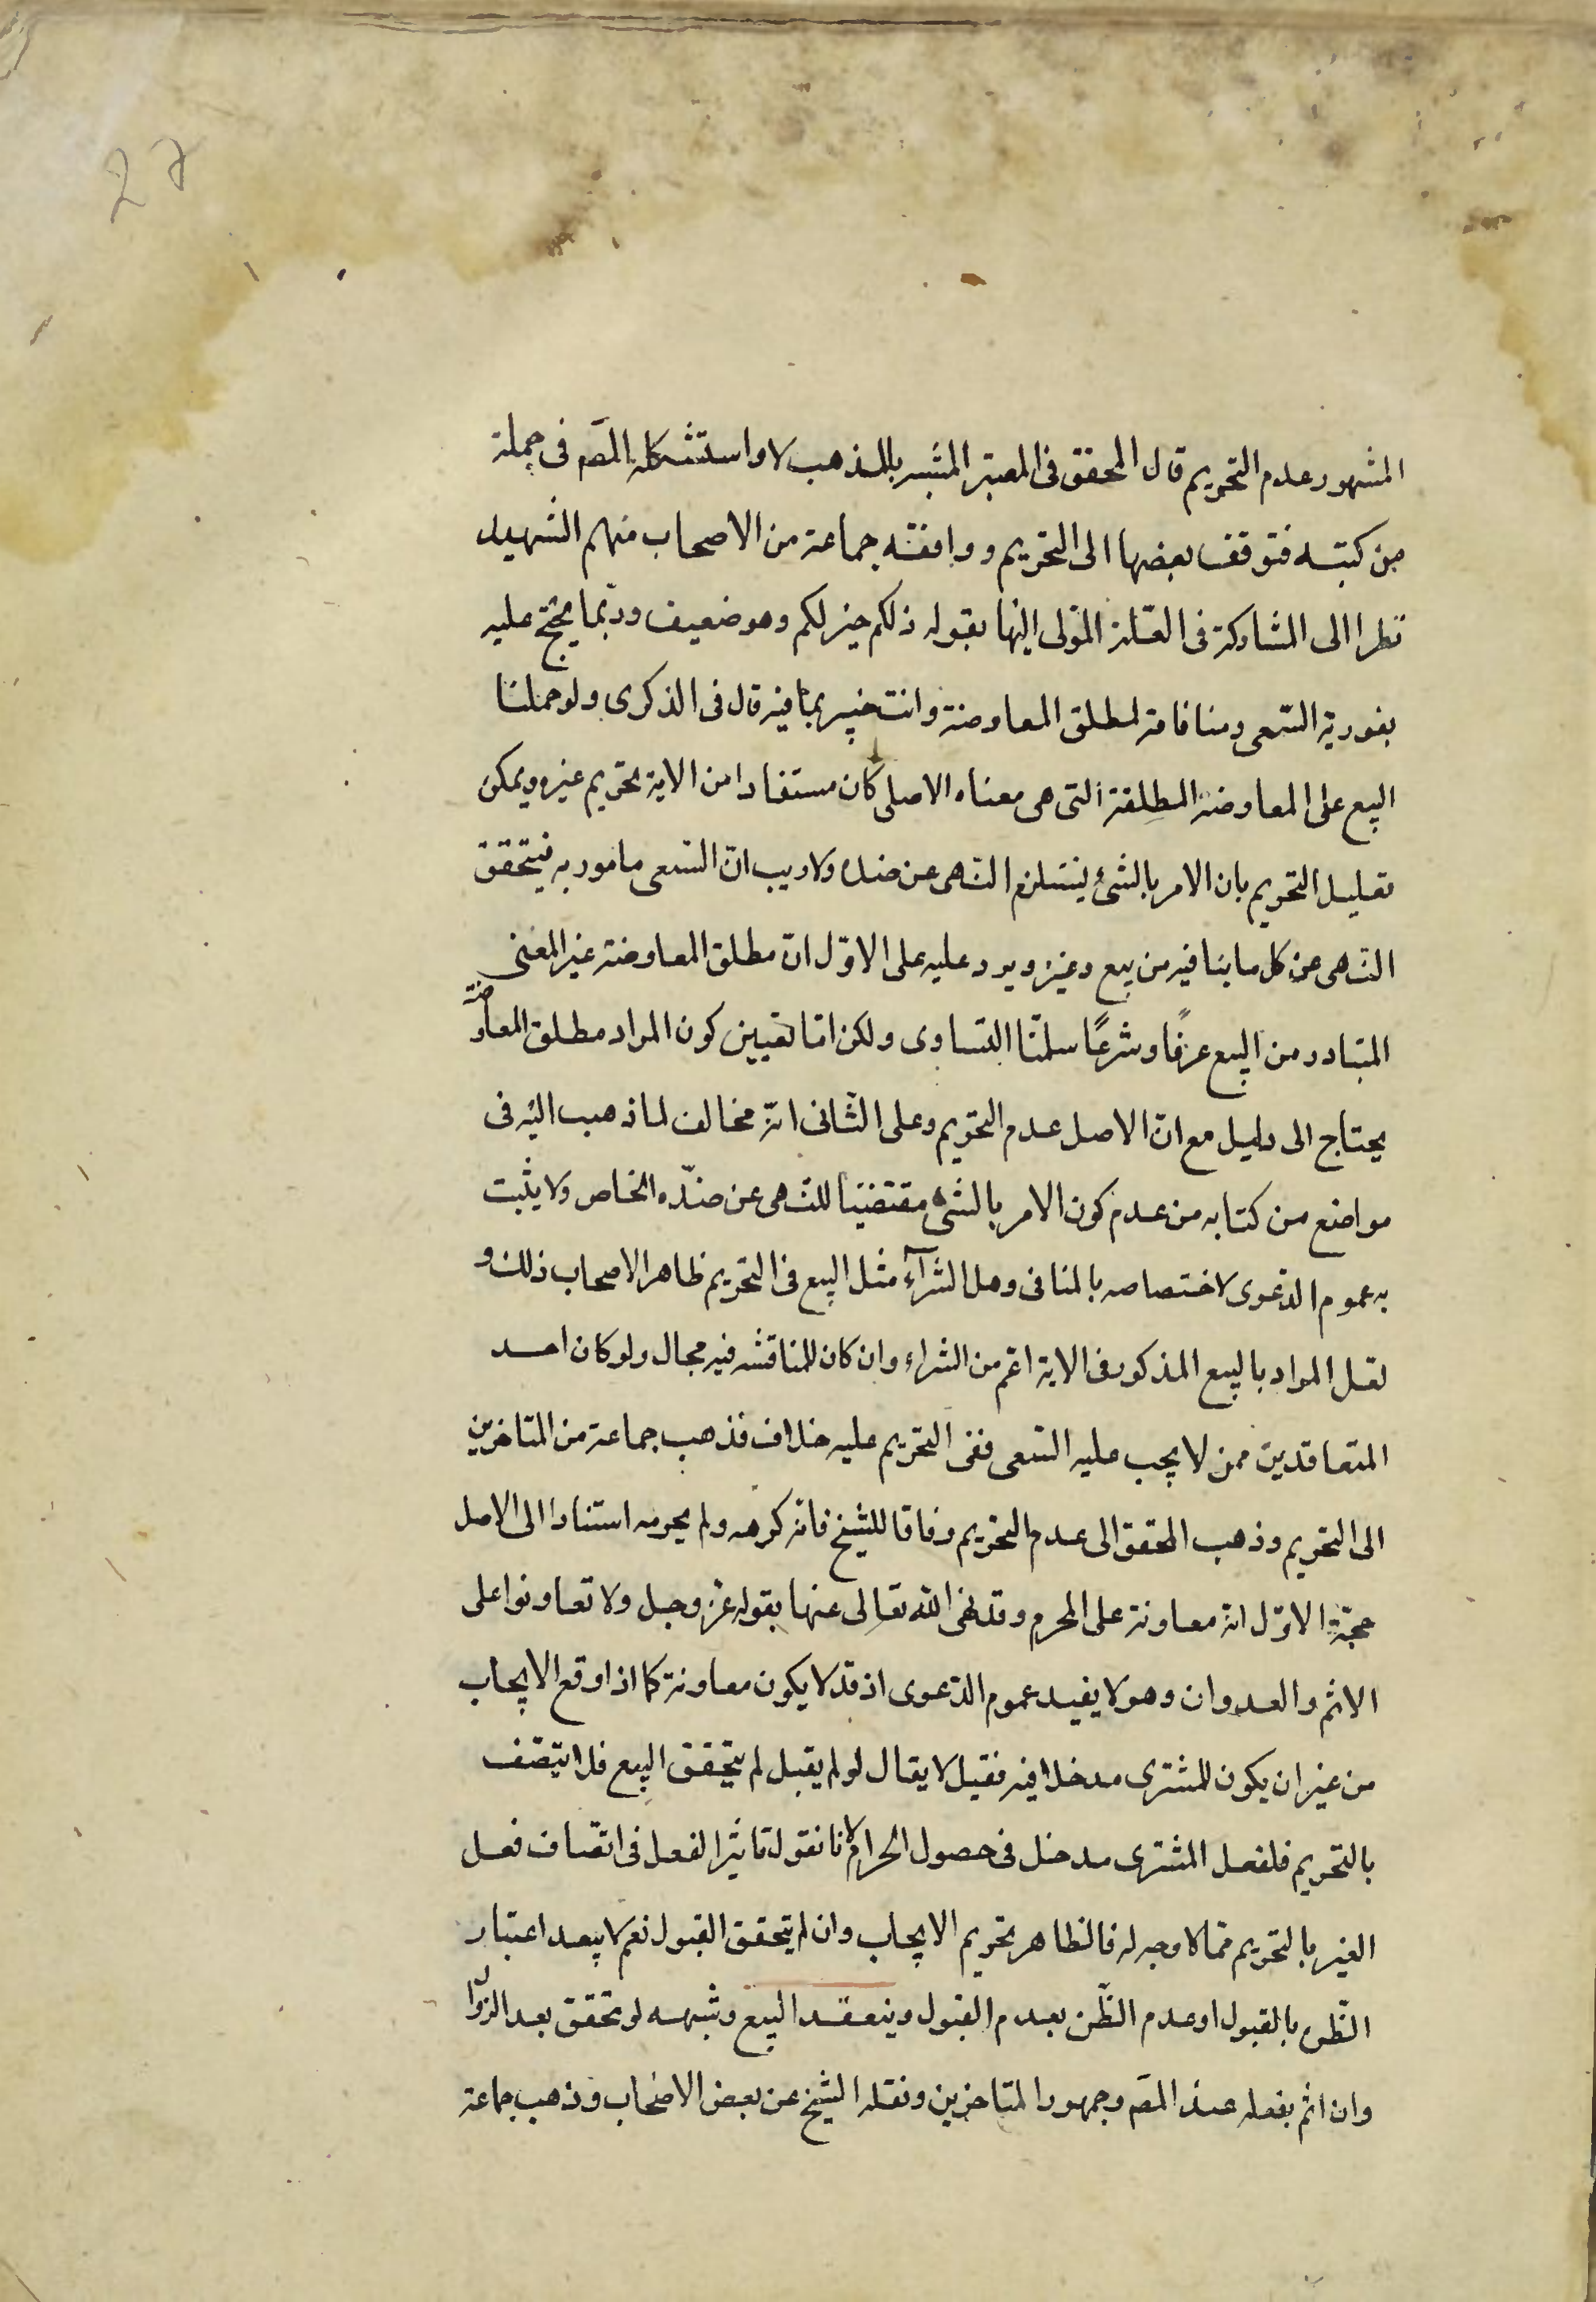 27
المشهور عدم التحريم قال المحقق فى المعتبر المشبه بالمذهب لا واستشكله المصَ فى جملة
من كتبه فتوقف بعضها الى التحريم ووافقه جماعة من الاصحاب منهم الشهيد
نظرا الى المشاركة فى العلّة المؤمى اليها بقوله ذلكم خير لكم وهو ضعيف وربما يحتج عليه
بفورية السّعى ومنافاة لمطلق المعاوضة وانت خبير بما فيه قال فى الذكرى ولو حملنا
البيع على المعاوضة المطلقة التى هى معناه الاصلى كان مستفادا من الاية تحريم غيره ويمكن
تعليل التحريم بان الامر بالشئ يستلزم النهى عن ضده ولا ريب انّ السّعى مامور به فيتحقق
النهى عن كل ما ينافيه من بيع وغيره ويرد عليه على الاوّل انّ مطلق المعاوضة غير المعنى
المتبادر من البيع عرفًا وشرعًا سلمنا التساوى ولكن انما تعيين كون المراد مطلق المعاوضة
يحتاج الى دليل مع انّ الاصل عدم التحريم وعلى الثّانى انّه مخالف لما ذهب اليه فى
مواضع من كتابه من عدم كون الامر بالشئ مقتضيًا للنهى عن ضدّه الخاص ولا يثبت
به عموم الدّعوى لاختصاصه بالمنافى وهل الشرآء مثل البيع فى التحريم ظاهر الاصحاب ذلك و
لعل المراد بالبيع المذكور فى الاية اعم من الشراء وان كان للمناقشه فيه مجال ولو كان احد
المتعاقدين ممن لا يجب عليه السّعى ففى التحريم عليه خلاف فذهب جماعة من المتاخرين
الى التحريم وذهب المحقق الى عدم التحريم وفاقا للشيخ فانه كرهه ولم يحرمه استنادا الى الاصل
حجّة الاوّل انه معاونة على المحرم وقد نهى الله تعالى عنها بقوله عزّ وجل ولا تعاونوا على
الاثم والعدوان وهو لا يفيد عموم الدّعوى اذ قد لا يكون معاونة كما اذا وقع الايجاب
من غير ان يكون للمشترى مدخلا فيه فقيل لا يقال لو لم يقبل لم يتحقق البيع فلا يتصّف
بالتحريم فلفعل المشترى مدخل فى حصول الحرام لانا نقول تاثير الفعل فى اتصّاف فعل
الغير بالتحريم مما لا وجه له فالظاهر تحريم الايجاب وان لم يتحقق القبول نعم لا يبعد اعتبار
الظّن بالقبول او عدم الظّن بعدم القبول وينعقد البيع وشبهه لو تحقق بعد الزوال
وان اثم بفعله عند المصَ وجمهور المتاخرين ونقله الشيخ عن بعض الاصحاب وذهب جماعة